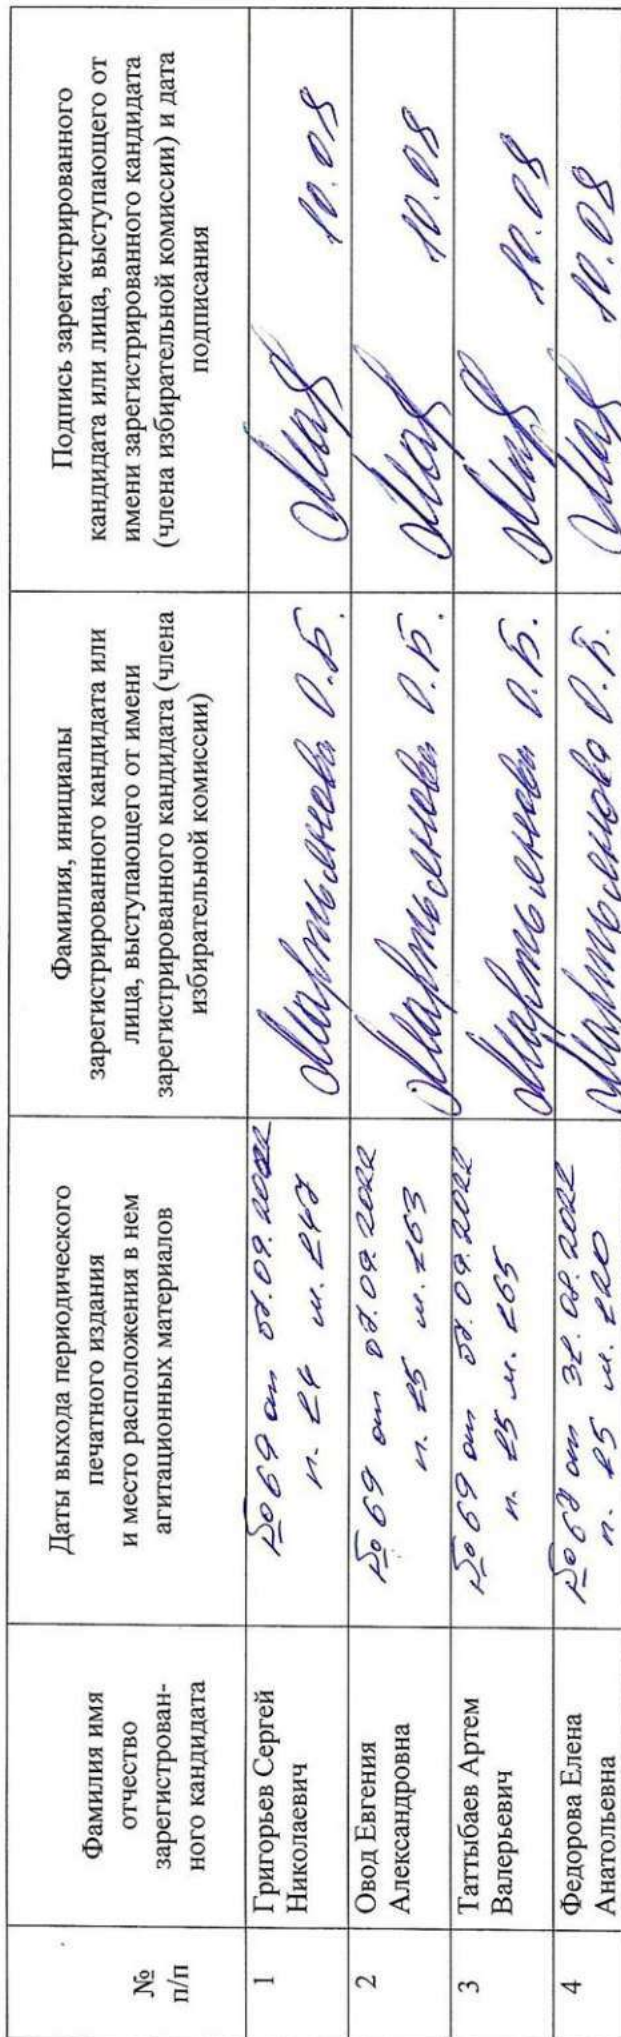 №
п/п
Фамилия имя
отчество
зарегистрирован-
ного кандидата
Даты выхода периодического
печатного издания
и место расположения в нем
агитационных материалов
Фамилия, инициалы
зарегистрированного кандидата или
лица, выступающего от имени
зарегистрированного кандидата (члена
избирательной комиссии)
Подпись зарегистрированного
кандидата или лица, выступающего от
имени зарегистрированного кандидата
(члена избирательной комиссии) и дата
подписания
1
Григорьев Сергей
Николаевич
№ 69 от 07.09.2022
п. 24 м. 247
Мартьянова О.Б.
10.08
2
Овод Евгения
Александровна
№ 69 от 07.09.2022
п. 25 м. 263
Мартьянова О.Б.
10.08
3
Таттыбаев Артем
Валерьевич
№ 69 от 07.09.2022
п. 25 м. 265
Мартьянова О.Б.
10.08
4
Федорова Елена
Анатольевна
№ 67 от 31.08.2022
п. 25 м. 220
Мартьянова О.Б.
10.08